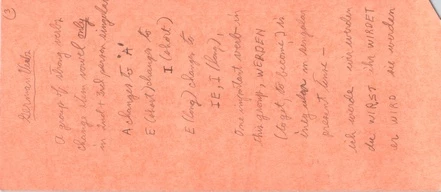 3
German Verbs
A group of strong verbs
change their vowel only
in 2nd & 3rd person singular
A changes to "Ä"
E (short) changes to
I (short)
E (long) changes to
IE, I (long),
One important verb in
this group, WERDEN
(to get, to become) is
in singular
present tense –
ich werde wir werden
du WIRST ihr WERDET
er WIRD sie werden